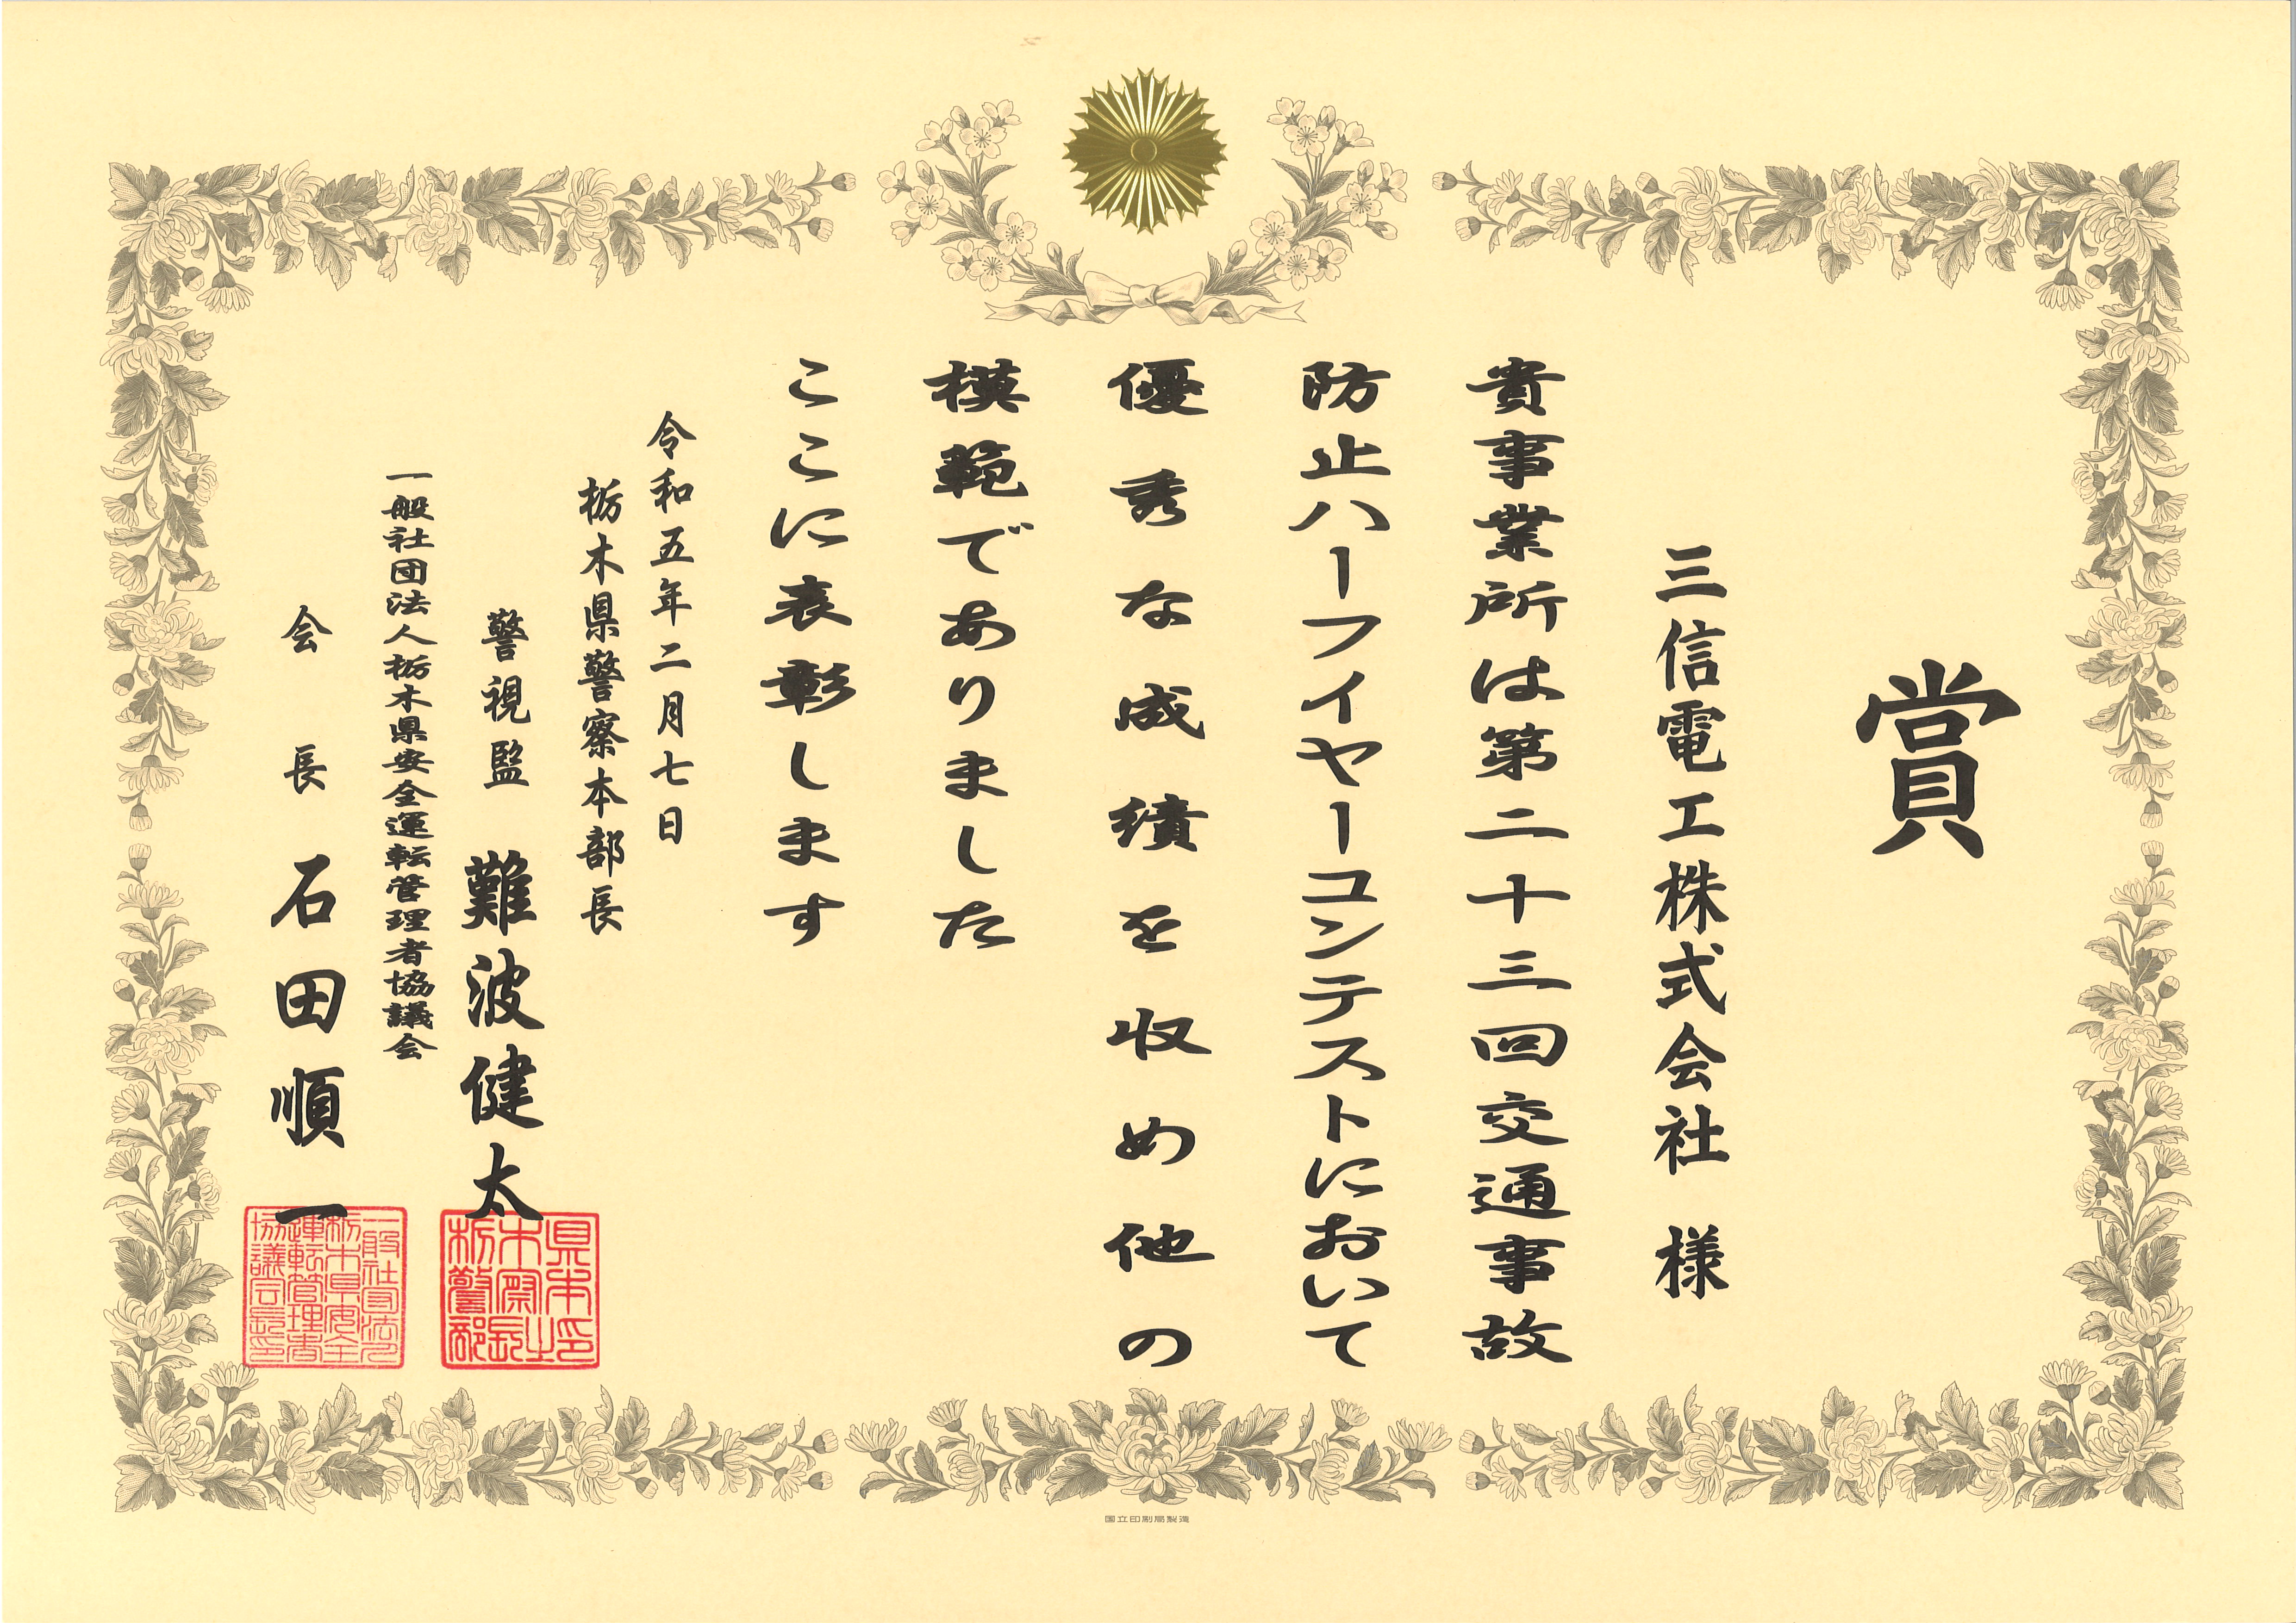 賞
三信電工株式会社 様
貴事業所は第二十三回交通事故
防止ハーフイヤーコンテストにおいて
優秀な成績を収め他の
模範でありました
ここに表彰します
令和五年二月七日
栃木県警察本部長
警視監 難波健太
一般社団法人栃木県安全運転管理者協議会
会長 石田順一
県本印
木察長之
栃警部
一般社団法人
栃木県安全
運転管理者
協議会長印
国立印刷局製造